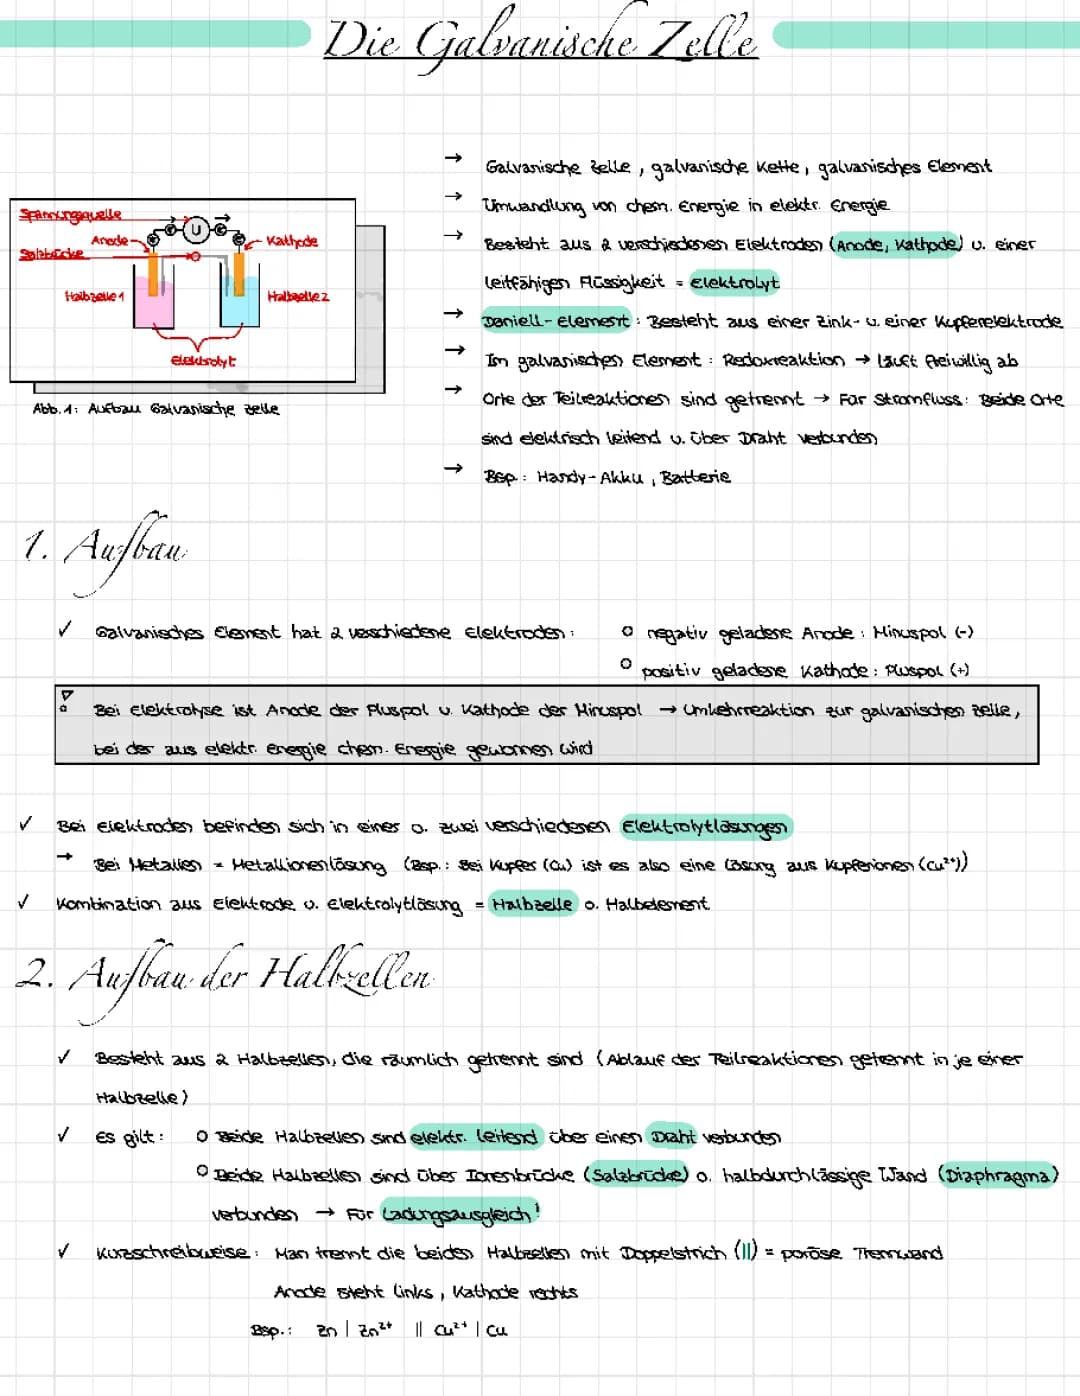 Die Galvanische Zelle
→ Galvanische Zelle, galvanische Kette, galvanisches Element
→ Umwandlung von chem. Energie in elektr. Energie
→ Besteht aus 2 verschiedenen Elektroden (Anode, Kathode) u. einer
leitfähigen Flüssigkeit = Elektrolyt
→ Daniell-Element: Besteht aus einer Zink- u. einer Kupferelektrode
→ Im galvanischen Element: Redoxreaktion → läuft freiwillig ab
→ Orte der Teilreaktionen sind getrennt → Für Stromfluss: Beide Orte
sind elektrisch leitend u. über Draht verbunden
→ Bsp.: Handy-Akku, Batterie
Spannungsquelle
U
Anode
Kathode
Salzbrücke
Halbzelle 1
Halbzelle 2
Elektrolyt
Abb. 1: Aufbau Galvanische Zelle
1. Aufbau
✓ Galvanisches Element hat 2 verschiedene Elektroden: o negativ geladene Anode: Minuspol (-)
o positiv geladene Kathode: Pluspol (+)
Bei Elektrolyse ist Anode der Pluspol u. Kathode der Minuspol → Umkehrreaktion zur galvanischen Zelle,
bei der aus elektr. Energie chem. Energie gewonnen wird
✓ Bei Elektroden befinden sich in einer o. zwei verschiedenen Elektrolytlösungen
→ Bei Metallen = Metallionenlösung (Bsp.: Bei Kupfer (Cu) ist es also eine Lösung aus Kupferionen (Cu²⁺))
✓ Kombination aus Elektrode u. Elektrolytlösung = Halbzelle o. Halbelement
2. Aufbau der Halbzellen
✓ Besteht aus 2 Halbzellen, die räumlich getrennt sind (Ablauf der Teilreaktionen getrennt in je einer
Halbzelle)
✓ Es gilt: o Beide Halbzellen sind elektr. leitend über einen Draht verbunden
o Beide Halbzellen sind über Ionenbrücke (Salzbrücke) o. halbdurchlässige Wand (Diaphragma)
verbunden → Für Ladungsausgleich!
✓ Kurzschreibweise: Man trennt die beiden Halbzellen mit Doppelstrich (||) = poröse Trennwand
Anode steht links, Kathode rechts
Bsp.: Zn | Zn²⁺ || Cu²⁺ | Cu